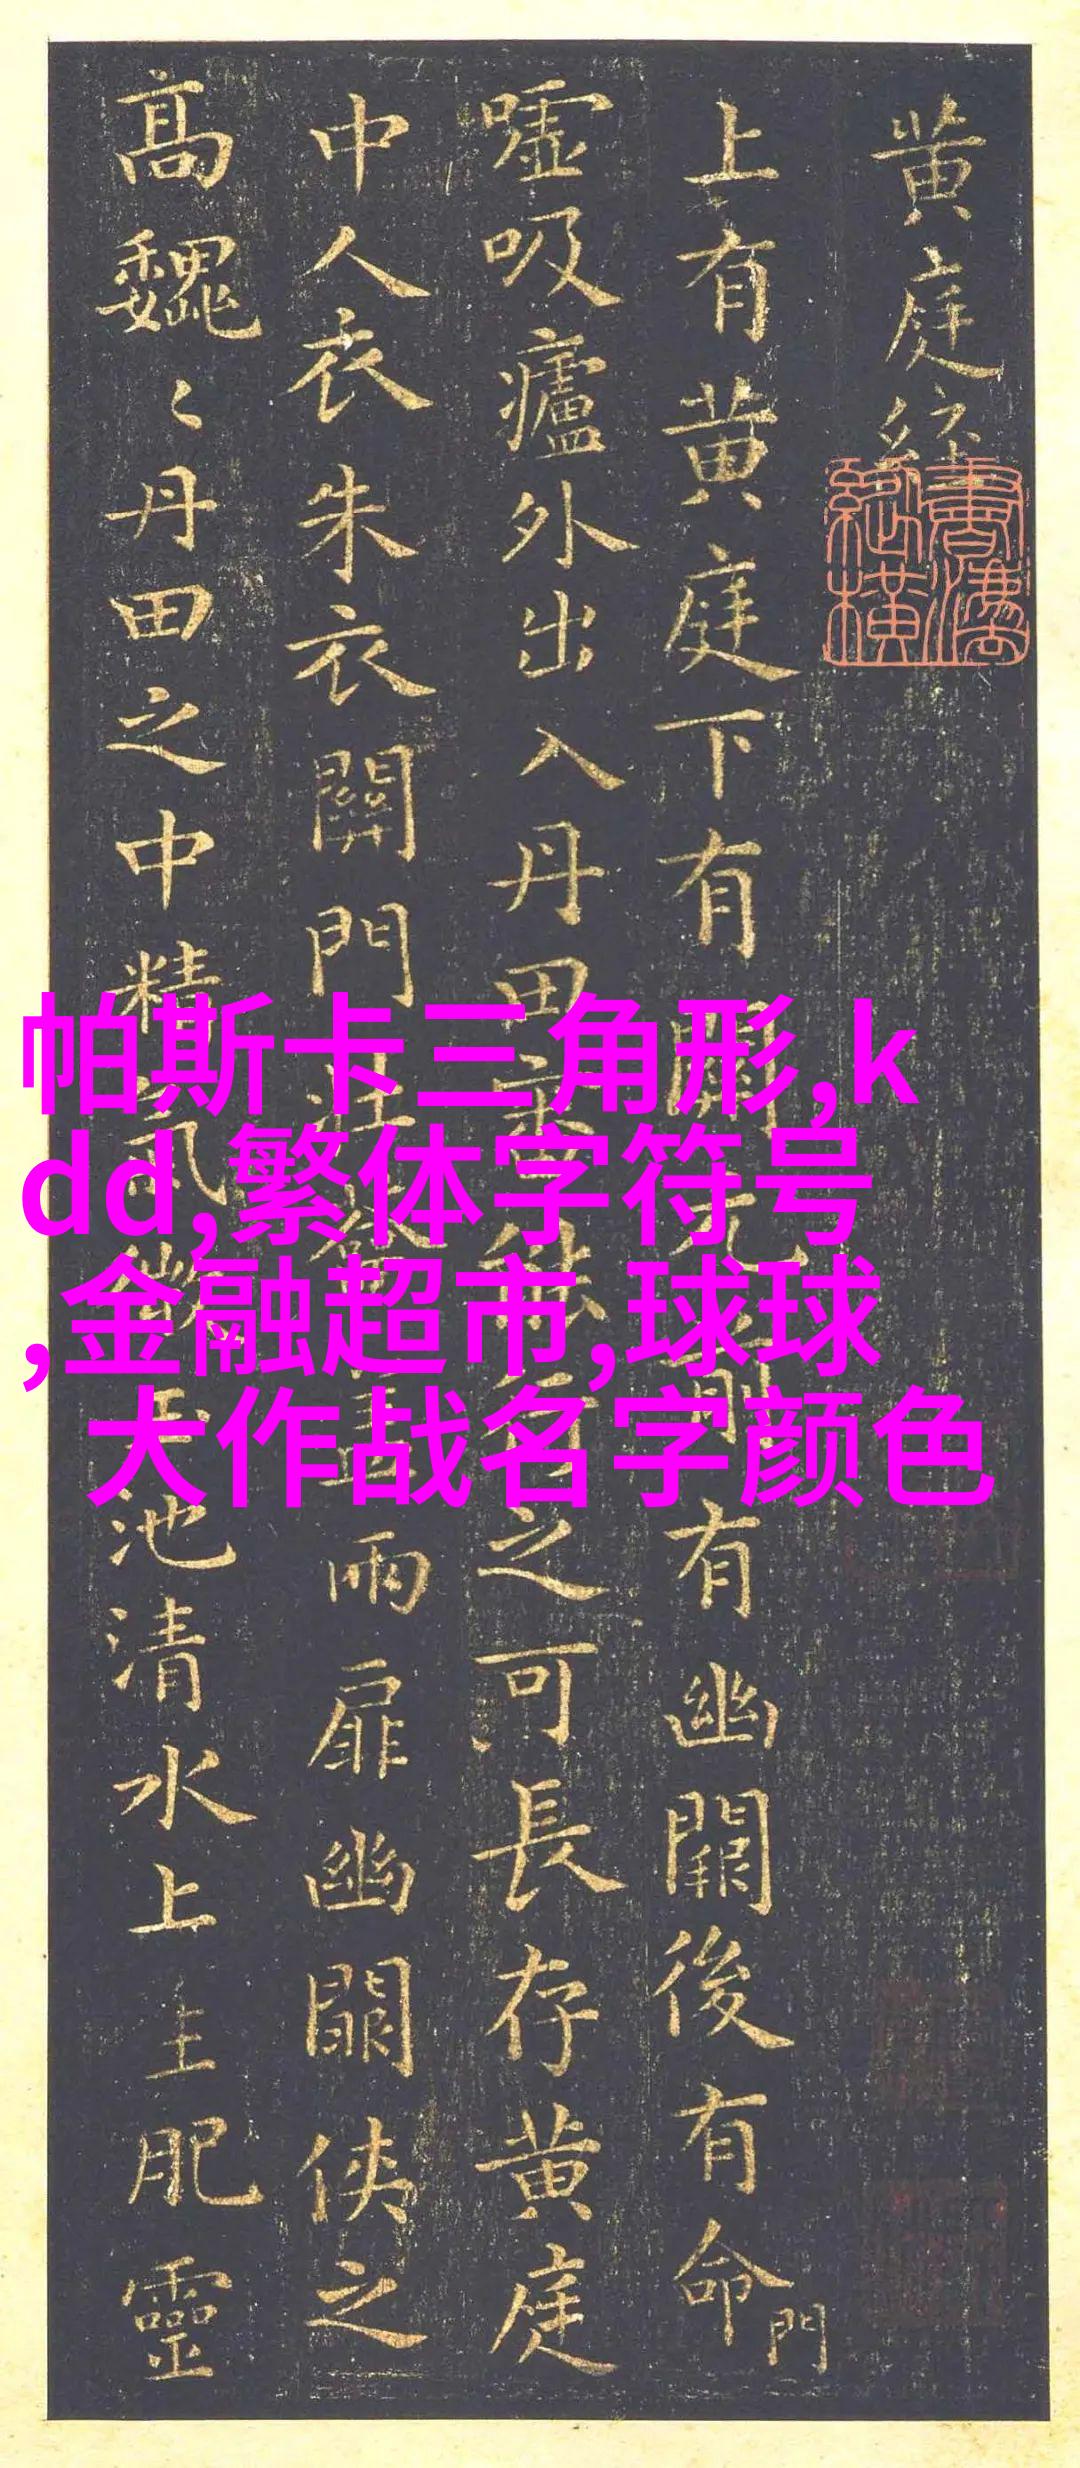 黄庭経
上有黄庭下有關元前有幽闕後有命門
嘘吸廬外出入丹田審能行之可長存黄庭
中人衣朱衣關門壯籥蓋兩扉幽闕俠之
高魏〻丹田之中精氣微玉池清水上生肥靈
帕斯卡三角形,k
dd,繁体字符号
,金融超市,球球
大作战名字颜色